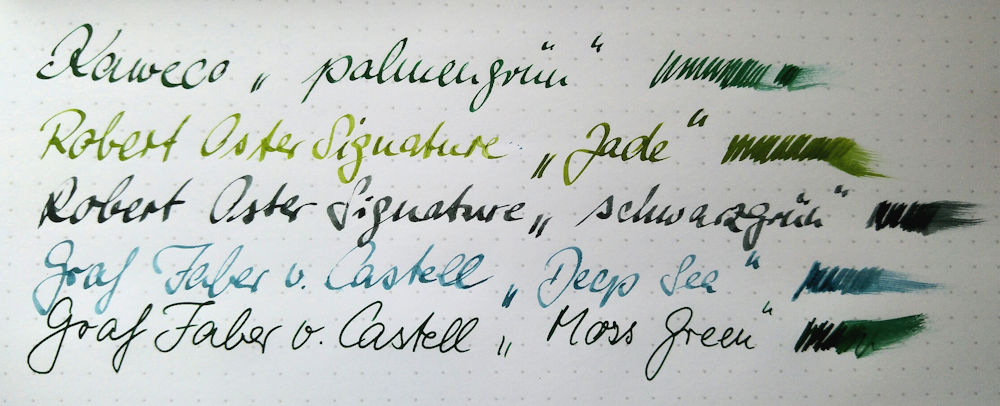 Kaweco „palmengrün“
Robert Oster Signature „Jade“
Robert Oster Signature „schwarzgrün“
Graf Faber v. Castell „Deep Sea“
Graf Faber v. Castell „Moss Green“